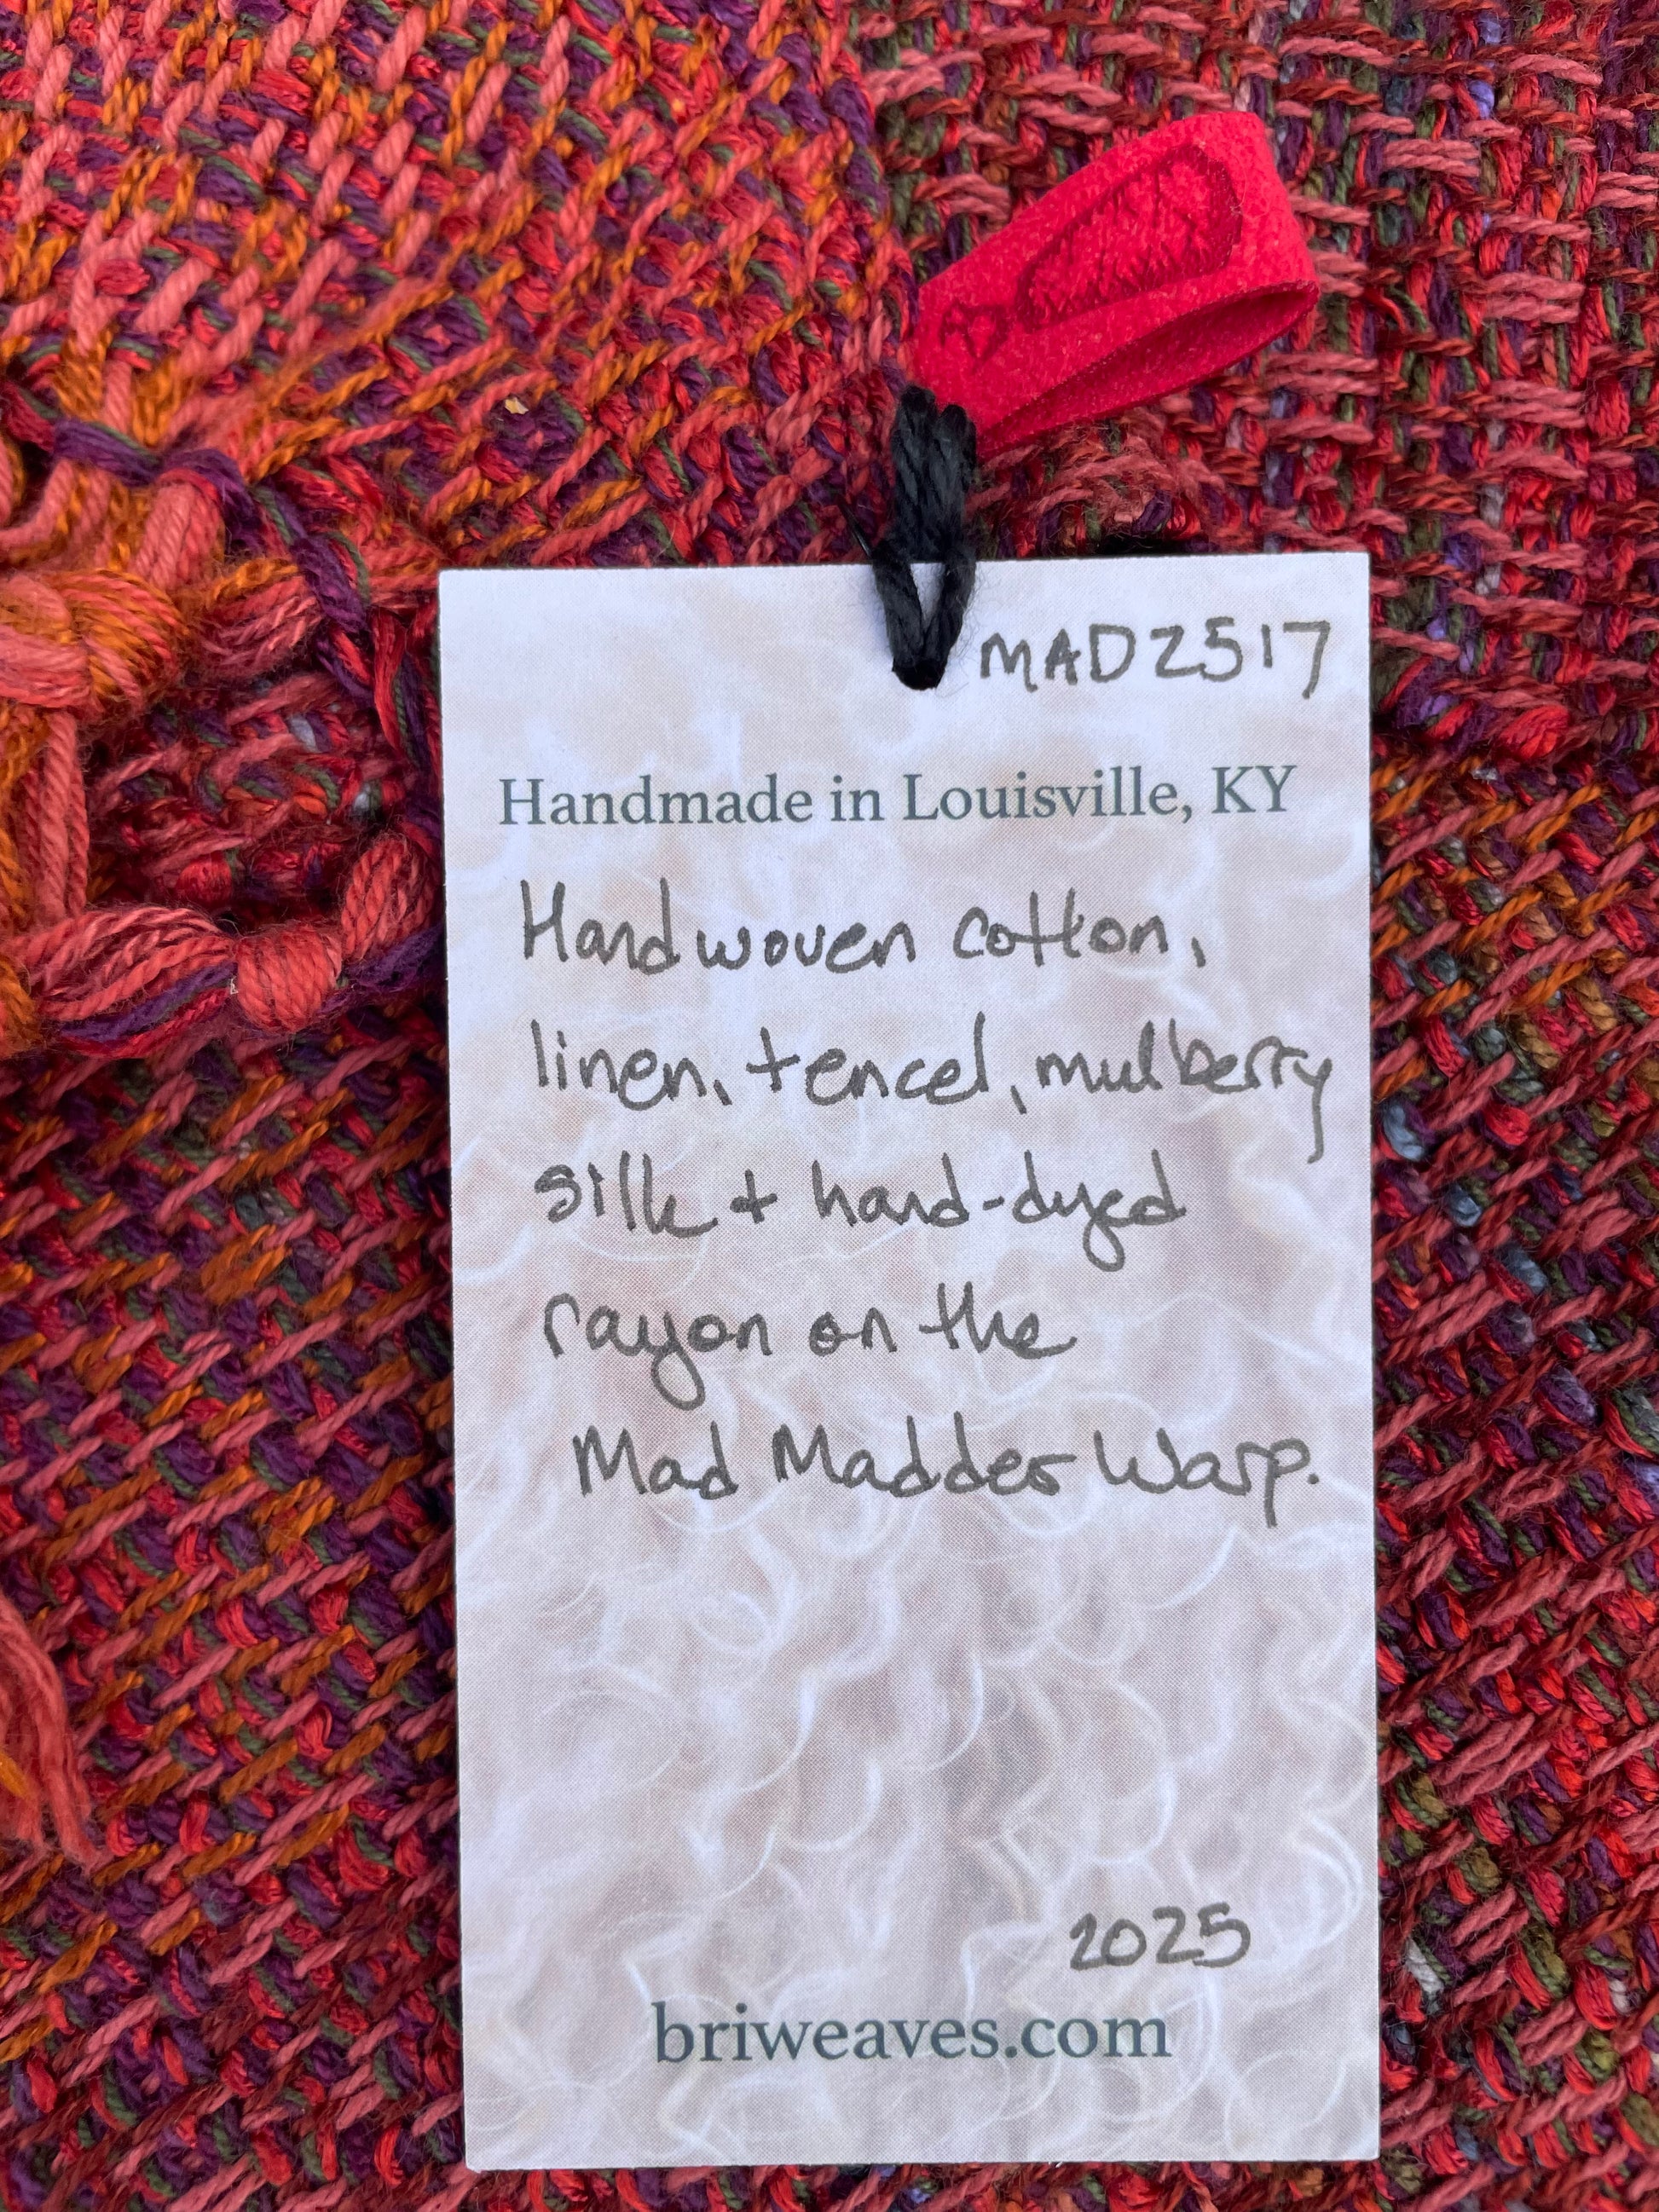 MAD2517
Handmade in Louisville, KY
Handwoven cotton,
linen, tencel, mulberry
silk + hand-dyed
rayon on the
Mad Madder Warp.
2025
briweaves.com